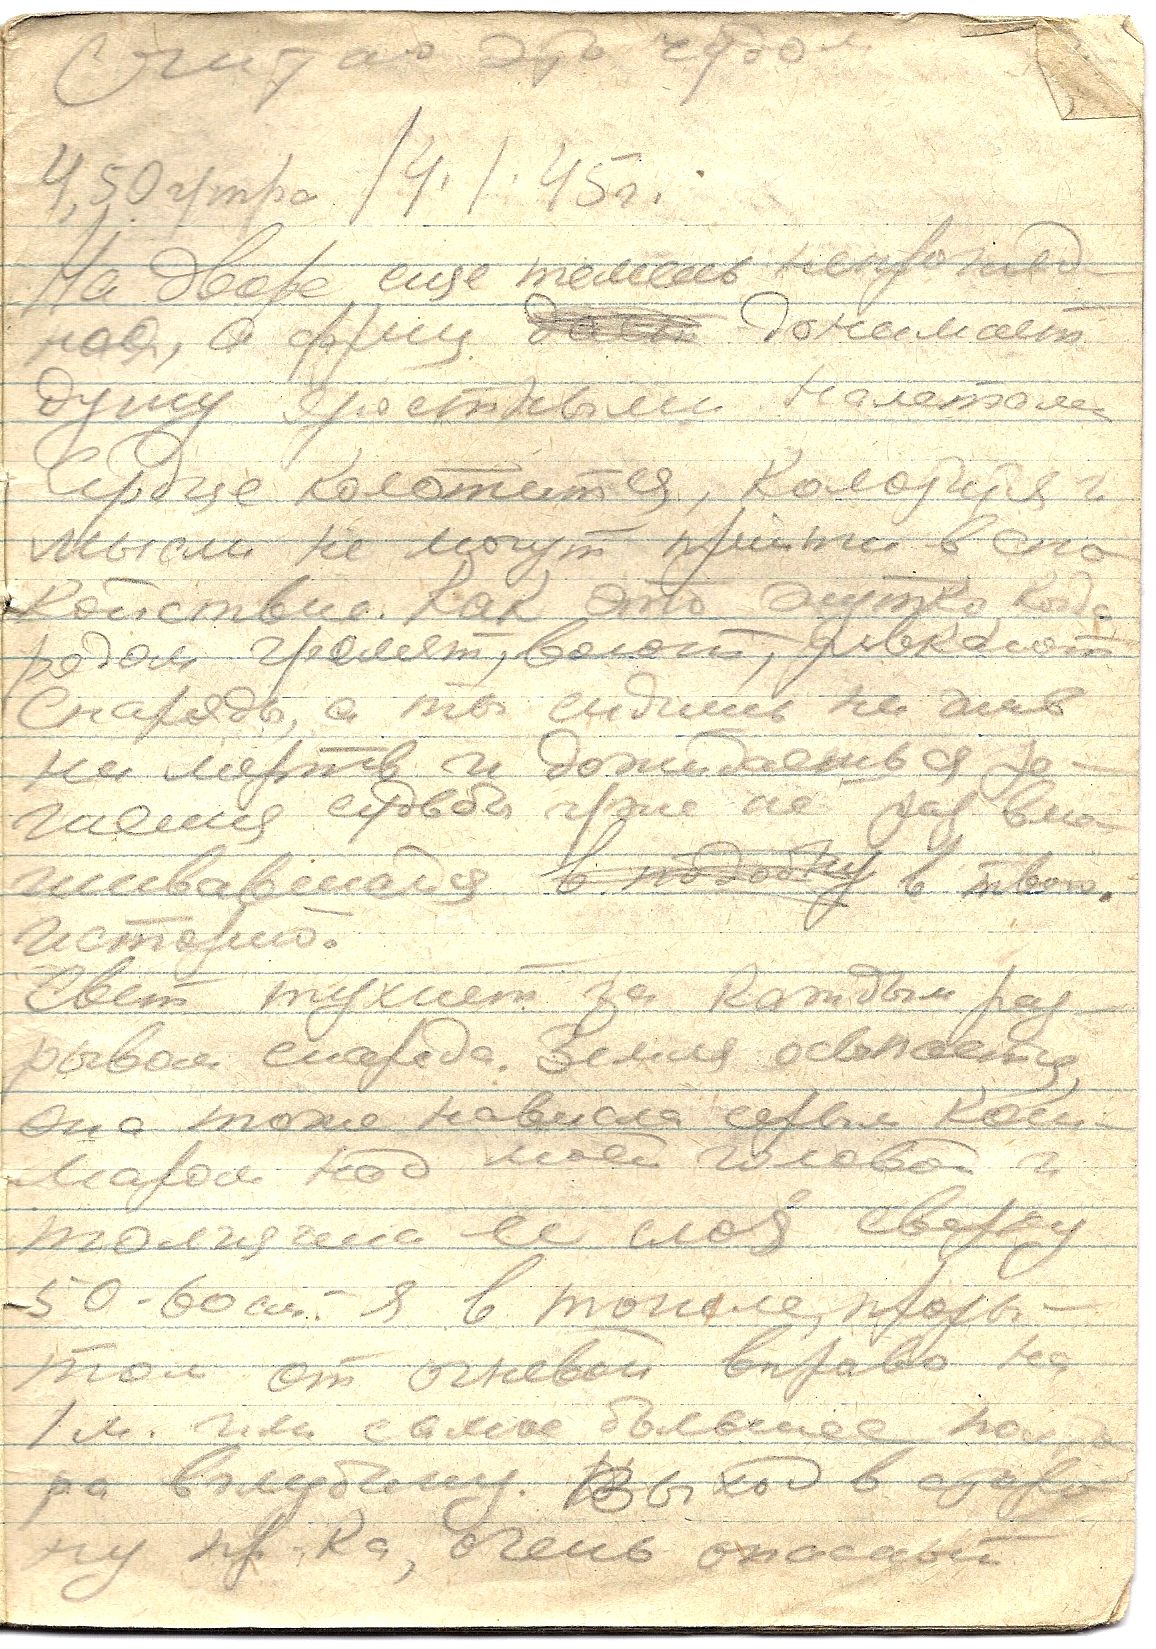 Считаю это чудом
4,50 утра 14.1.45г.
На дворе еще темень непрогляд-
ная, а фриц донимает
душу яростными налетами
Сердце колотится, колотится и
мысли не могут прийти в спо
койствие. Как это жутко, когда
рядом гремят, воют, рявкают
снаряды, а ты сидишь ни жив
ни мертв и дожидаешься ре-
шения судьбы уже не раз вме-
шивавшейся в подобну в твою.
историю.
Свет тухнет за каждым раз-
рывом снаряда. Земля осыпается,
она тоже нависла серым кош-
маром над моей головой и
толщина ее слоя сверху
50-60 см. Я в тонеле, проры-
том от огневой вправо на
1 м. или самое большее полто
ра вглубину. Выход в сторо
ну пр-ка, очень опасный